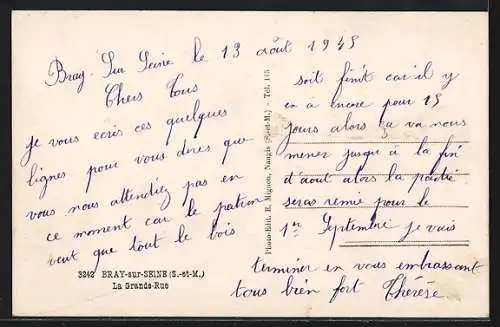 Bray-Sur Seine le 13 août 1945
Chers Tous
je vous ecris ces quelques
lignes pour vous dires que
vous nous attendiez pas en
ce moment car le patron
veut que tout le bois
3242 BRAY-sur-SEINE (S.-et-M.)
La Grande-Rue
Photo-Edit. R. Mignon, Nangis (S.-et-M.) - Tél. 115
soit finit car il y
en à encore pour 15
jours alors ça va nous
mener jusqu'à la fin
d'aout alors la partie
seras remie pour le
1er Septembre je vais
terminer en vous embrassant
tous bien fort Thérèse